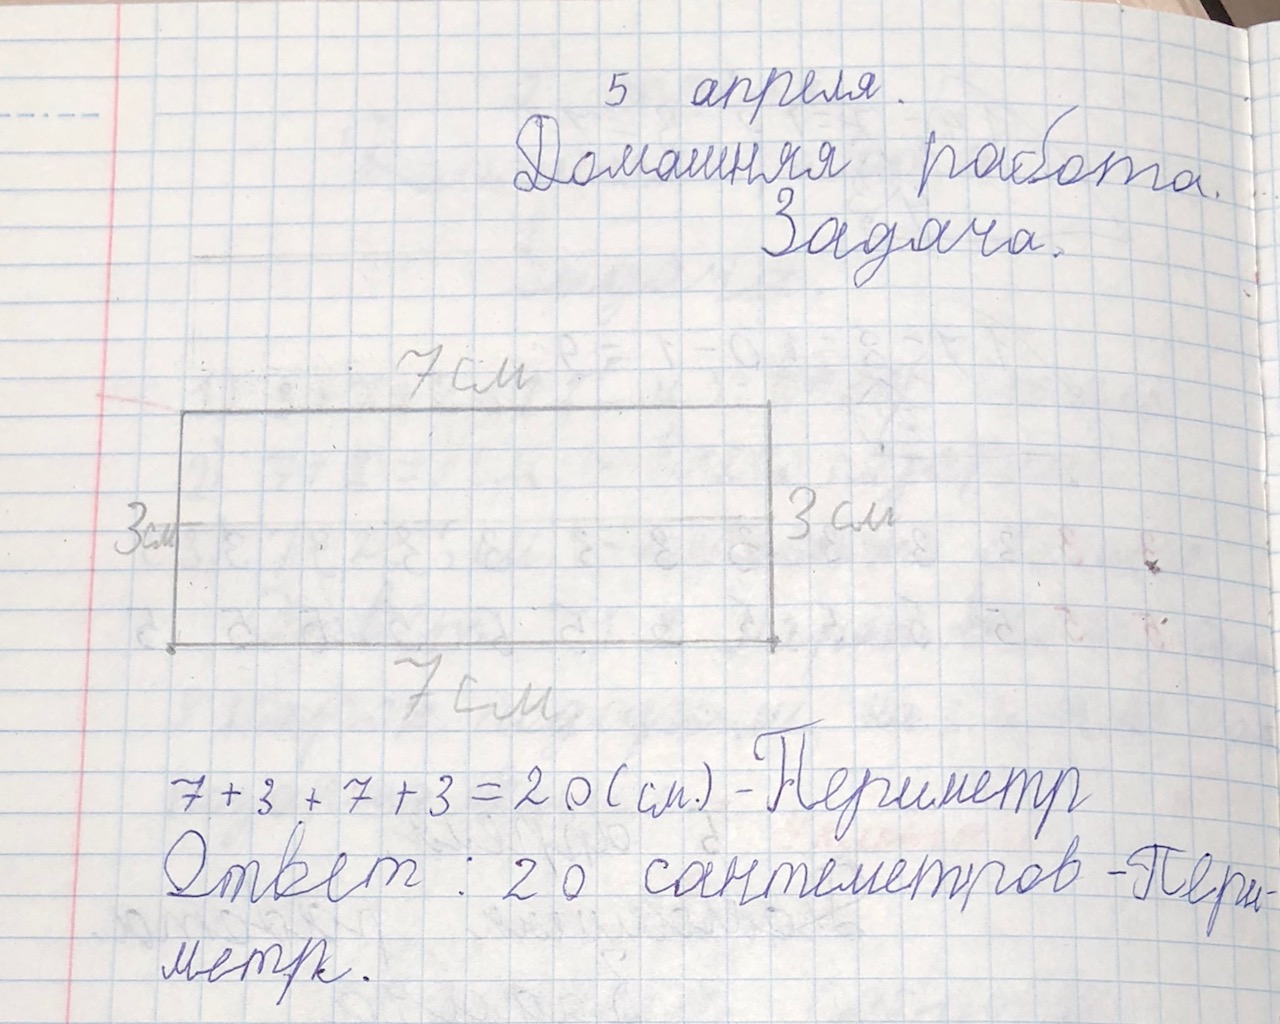 5 апреля.
Домашняя работа.
Задача.
7 см
3 см
3 см
7 см
7 + 3 + 7 + 3 = 20 (см.) - Периметр
Ответ : 20 сантеметров - Пери-
метр.